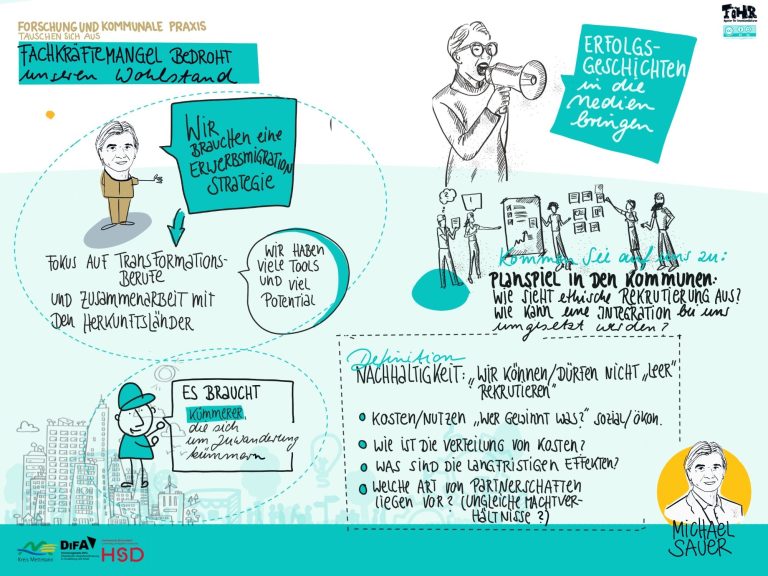 FORSCHUNG UND KOMMUNALE PRAXIS
TAUSCHEN SICH AUS
FACHKRÄFTEMANGEL BEDROHT
unseren Wohlstand
FÖHR
ERFOLGS-
GESCHICHTEN
in die
Medien
bringen
WIR
BRAUCHEN eine
ERWERBSMIGRATION
STRATEGIE
FOKUS AUF TRANSFORMATIONS-
BERUFE
UND ZUSAMMENARBEIT MIT
DEN HERKUNFTSLÄNDER
WIR HABEN
VIELE TOOLS
UND VIEL
POTENTIAL
?
!
Kommen Sie auf uns zu:
PLANSPIEL IN DEN KOMMUNEN:
WIE SIEHT ethische REKRUTIERUNG AUS?
WIE KANN EINE INTEGRATION bei uns
umgesetzt werden?
ES BRAUCHT
KÜMMERER,
die sich
um Zuwanderung
kümmern
Definition
NACHHALTIGKEIT: „WIR KÖNNEN/DÜRFEN NICHT „LEER"
REKRUTIEREN"
KOSTEN/NUTZEN „WER GEWINNT WAS?" SOZIAL/ÖKON.
WIE IST DIE VERTEILUNG VON KOSTEN?
WAS SIND DIE LANGFRISTIGEN EFFEKTEN?
WELCHE ART VON PARTNERSCHAFTEN
LIEGEN VOR? (UNGLEICHE MACHTVER-
HÄLTNISSE?)
MICHAEL
SAUER
Kreis Mettmann
DIFA
HSD